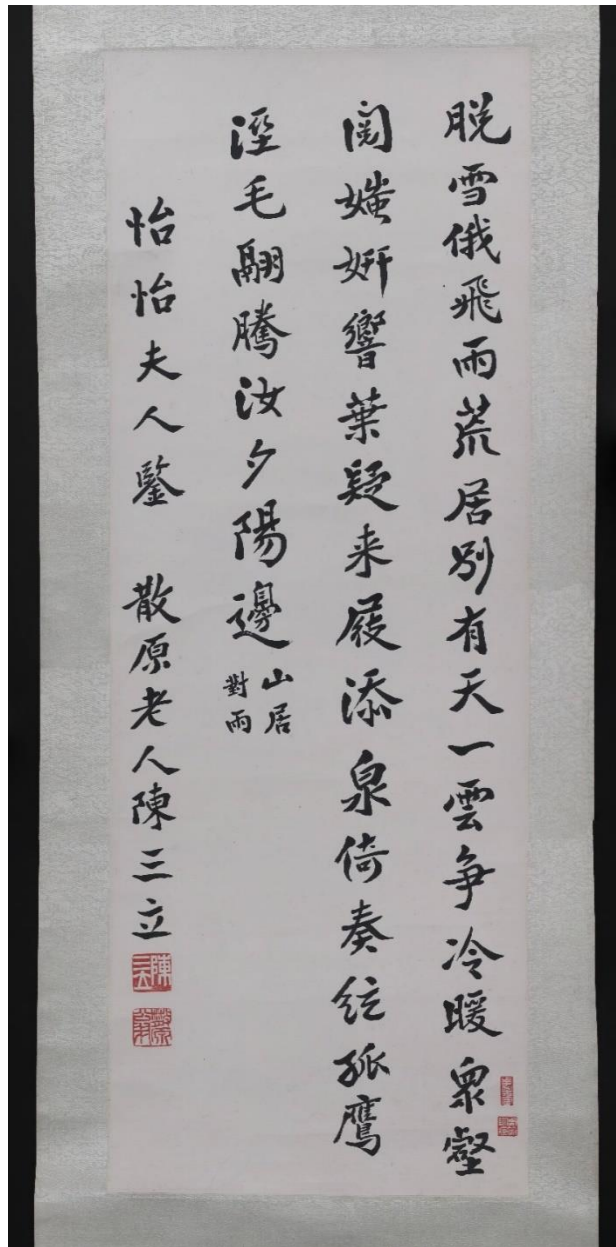 脫雪俄飛雨荒居別有天一雲爭冷暖衆壑
閣媸妍響葉疑来屐添泉倚奏絃孤鷹
溼毛翮騰汝夕陽邊山居
對雨
怡怡夫人鑒 散原老人陳三立
陳三立
散原